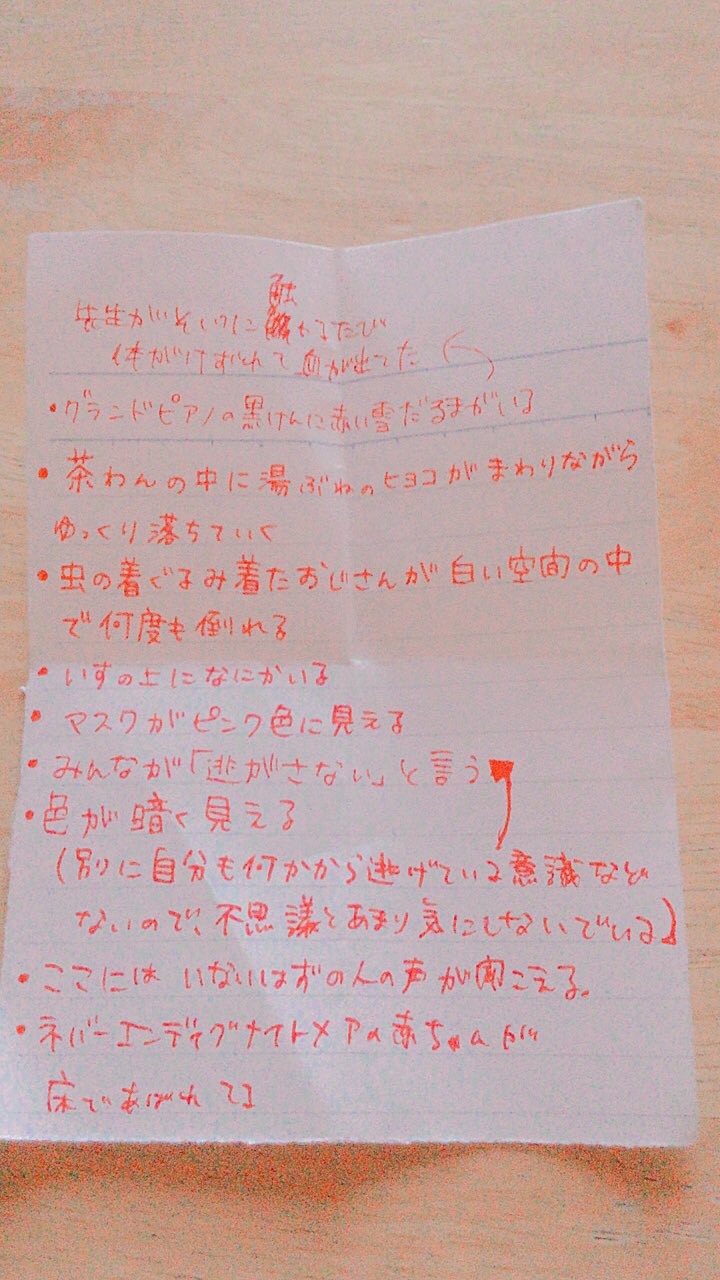 先生がそいつに触れるたび
体がけずれて血が出てた
・グランドピアノの黒けんに赤い雪だるまがいる
・茶わんの中に湯ぶねのヒヨコがまわりながら
ゆっくり落ちていく
・虫の着ぐるみ着たおじさんが白い空間の中
で何度も倒れる
・いすの上になにかいる
・マスクがピンク色に見える
・みんなが「逃がさない」と言う
・色が暗く見える
(別に自分も何かから逃げている意識など
ないので、不思議とあまり気にしないでいる)
・ここにはいないはずの人の声が聞こえる。
・ネバーエンディグナイトメアの赤ちゃんが
床であばれてる